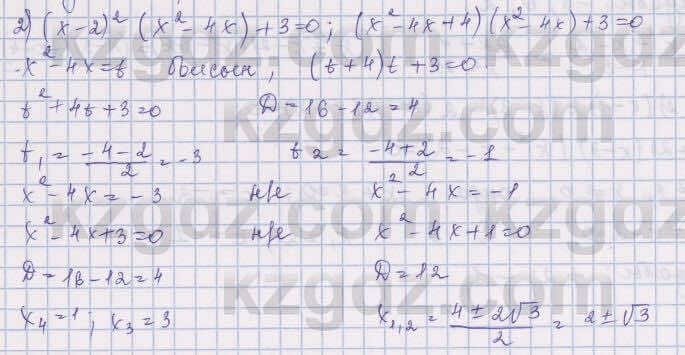 2) (x-2)² (x²-4x)+3=0; (x²-4x+4)(x²-4x)+3=0
x²-4x=t болсын, (t+4)t+3=0
t²+4t+3=0 D=16-12=4
t₁ = (-4-2)/2 = -3 t₂ = (-4+2)/2 = -1
x²-4x=-3 н/е x²-4x=-1
x²-4x+3=0 н/е x²-4x+1=0
D=16-12=4 D=12
x₄=1; x₃=3 x₁,₂ = (4±2√3)/2 = 2±√3
kzgdz.com kzgdz.com